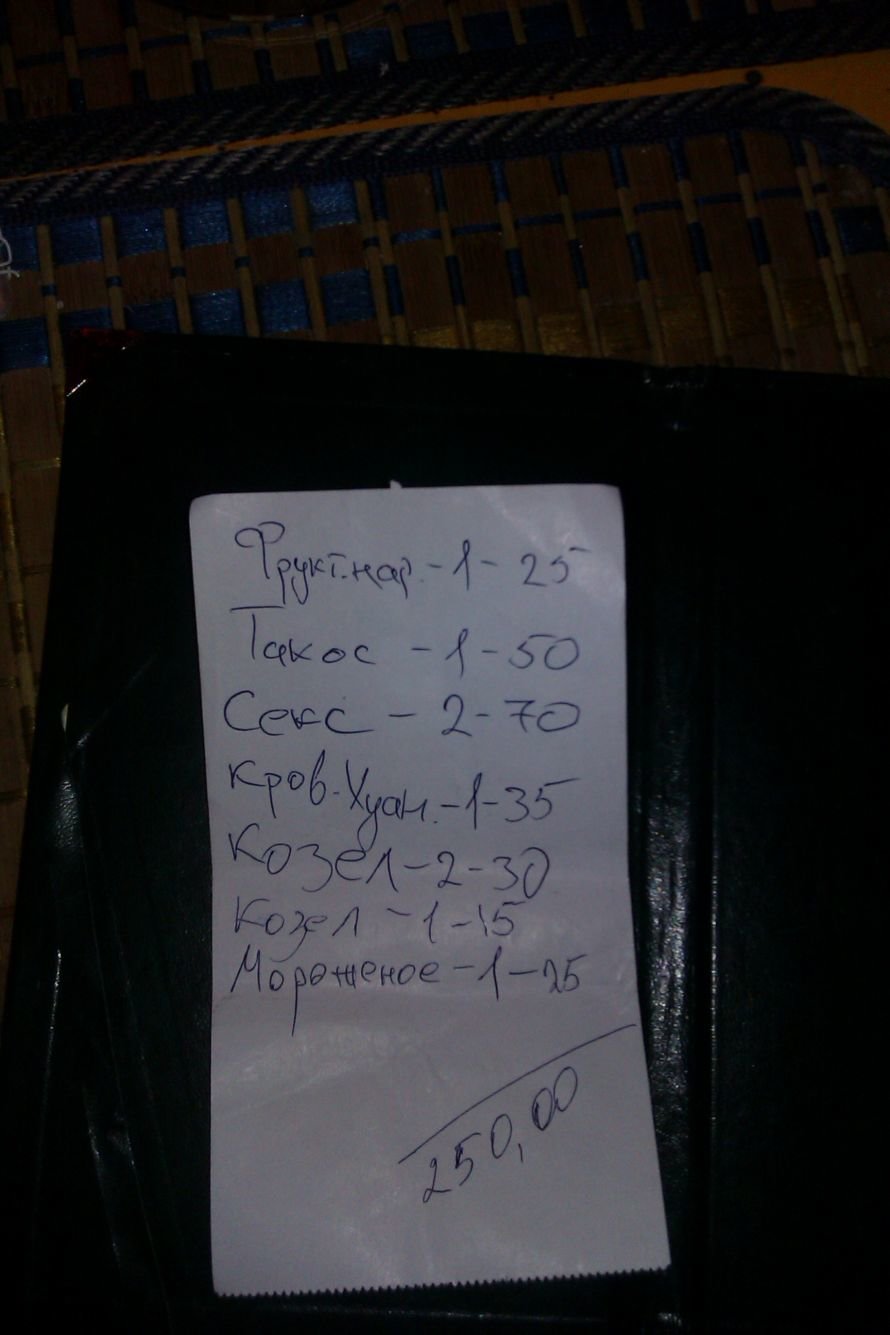 Фрукт.нар. - 1 - 25
Такос - 1 - 50
Секс - 2 - 70
Кров. Хуан. - 1 - 35
Козел - 2 - 30
Козел - 1 - 15
Мороженое - 1 - 25
250,00